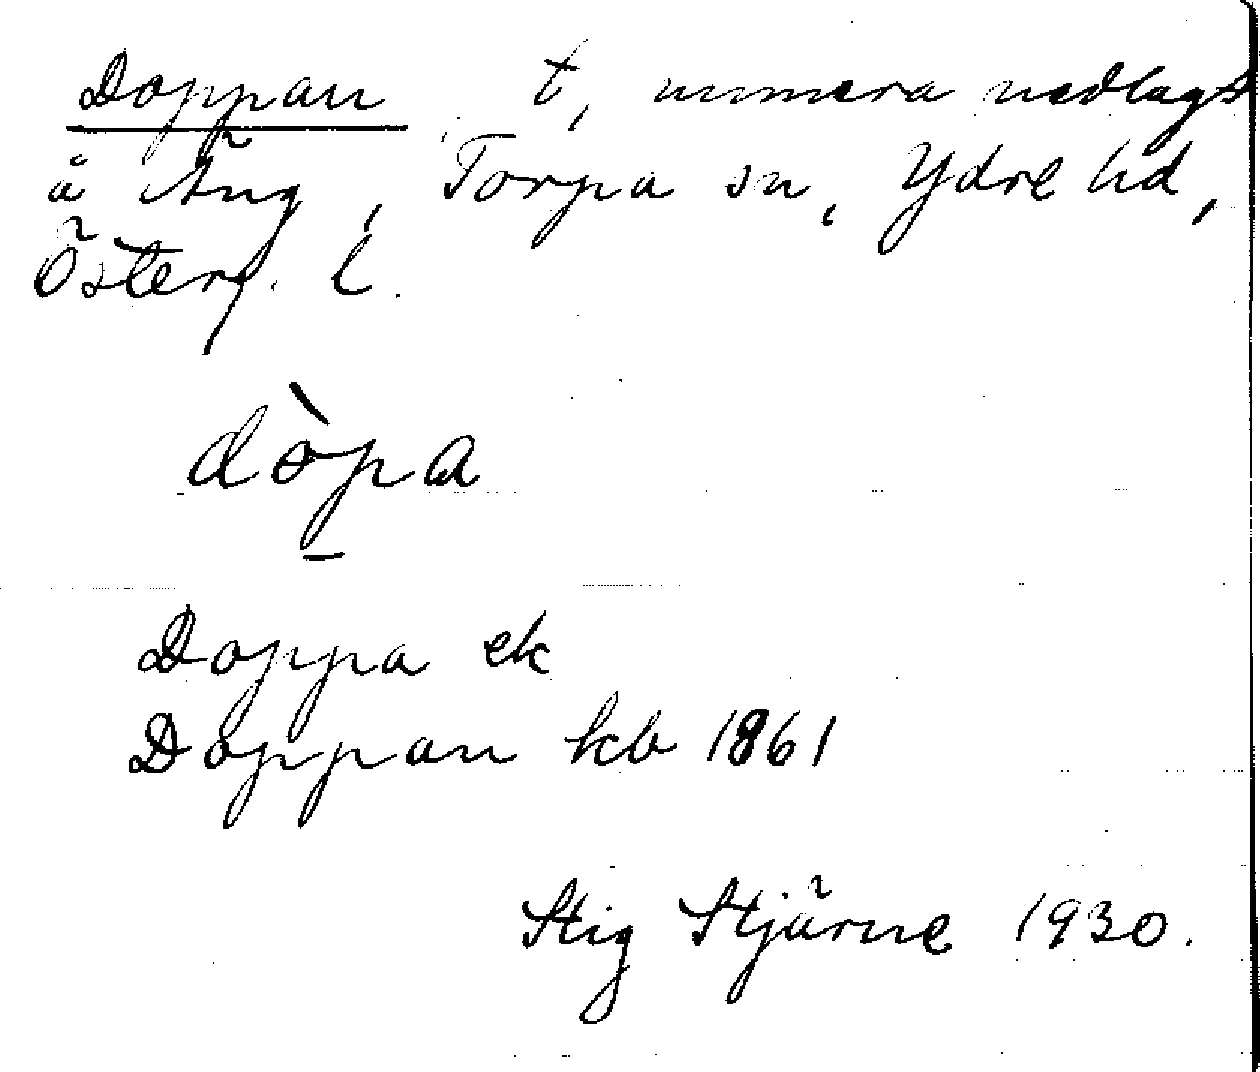 Doppan t, numera nedlagt
å Äng, Torpa sn, Ydre hd,
Österg. l.
dòpa
Doppa ek
Doppan kb 1861
Stig Stjärne 1930.